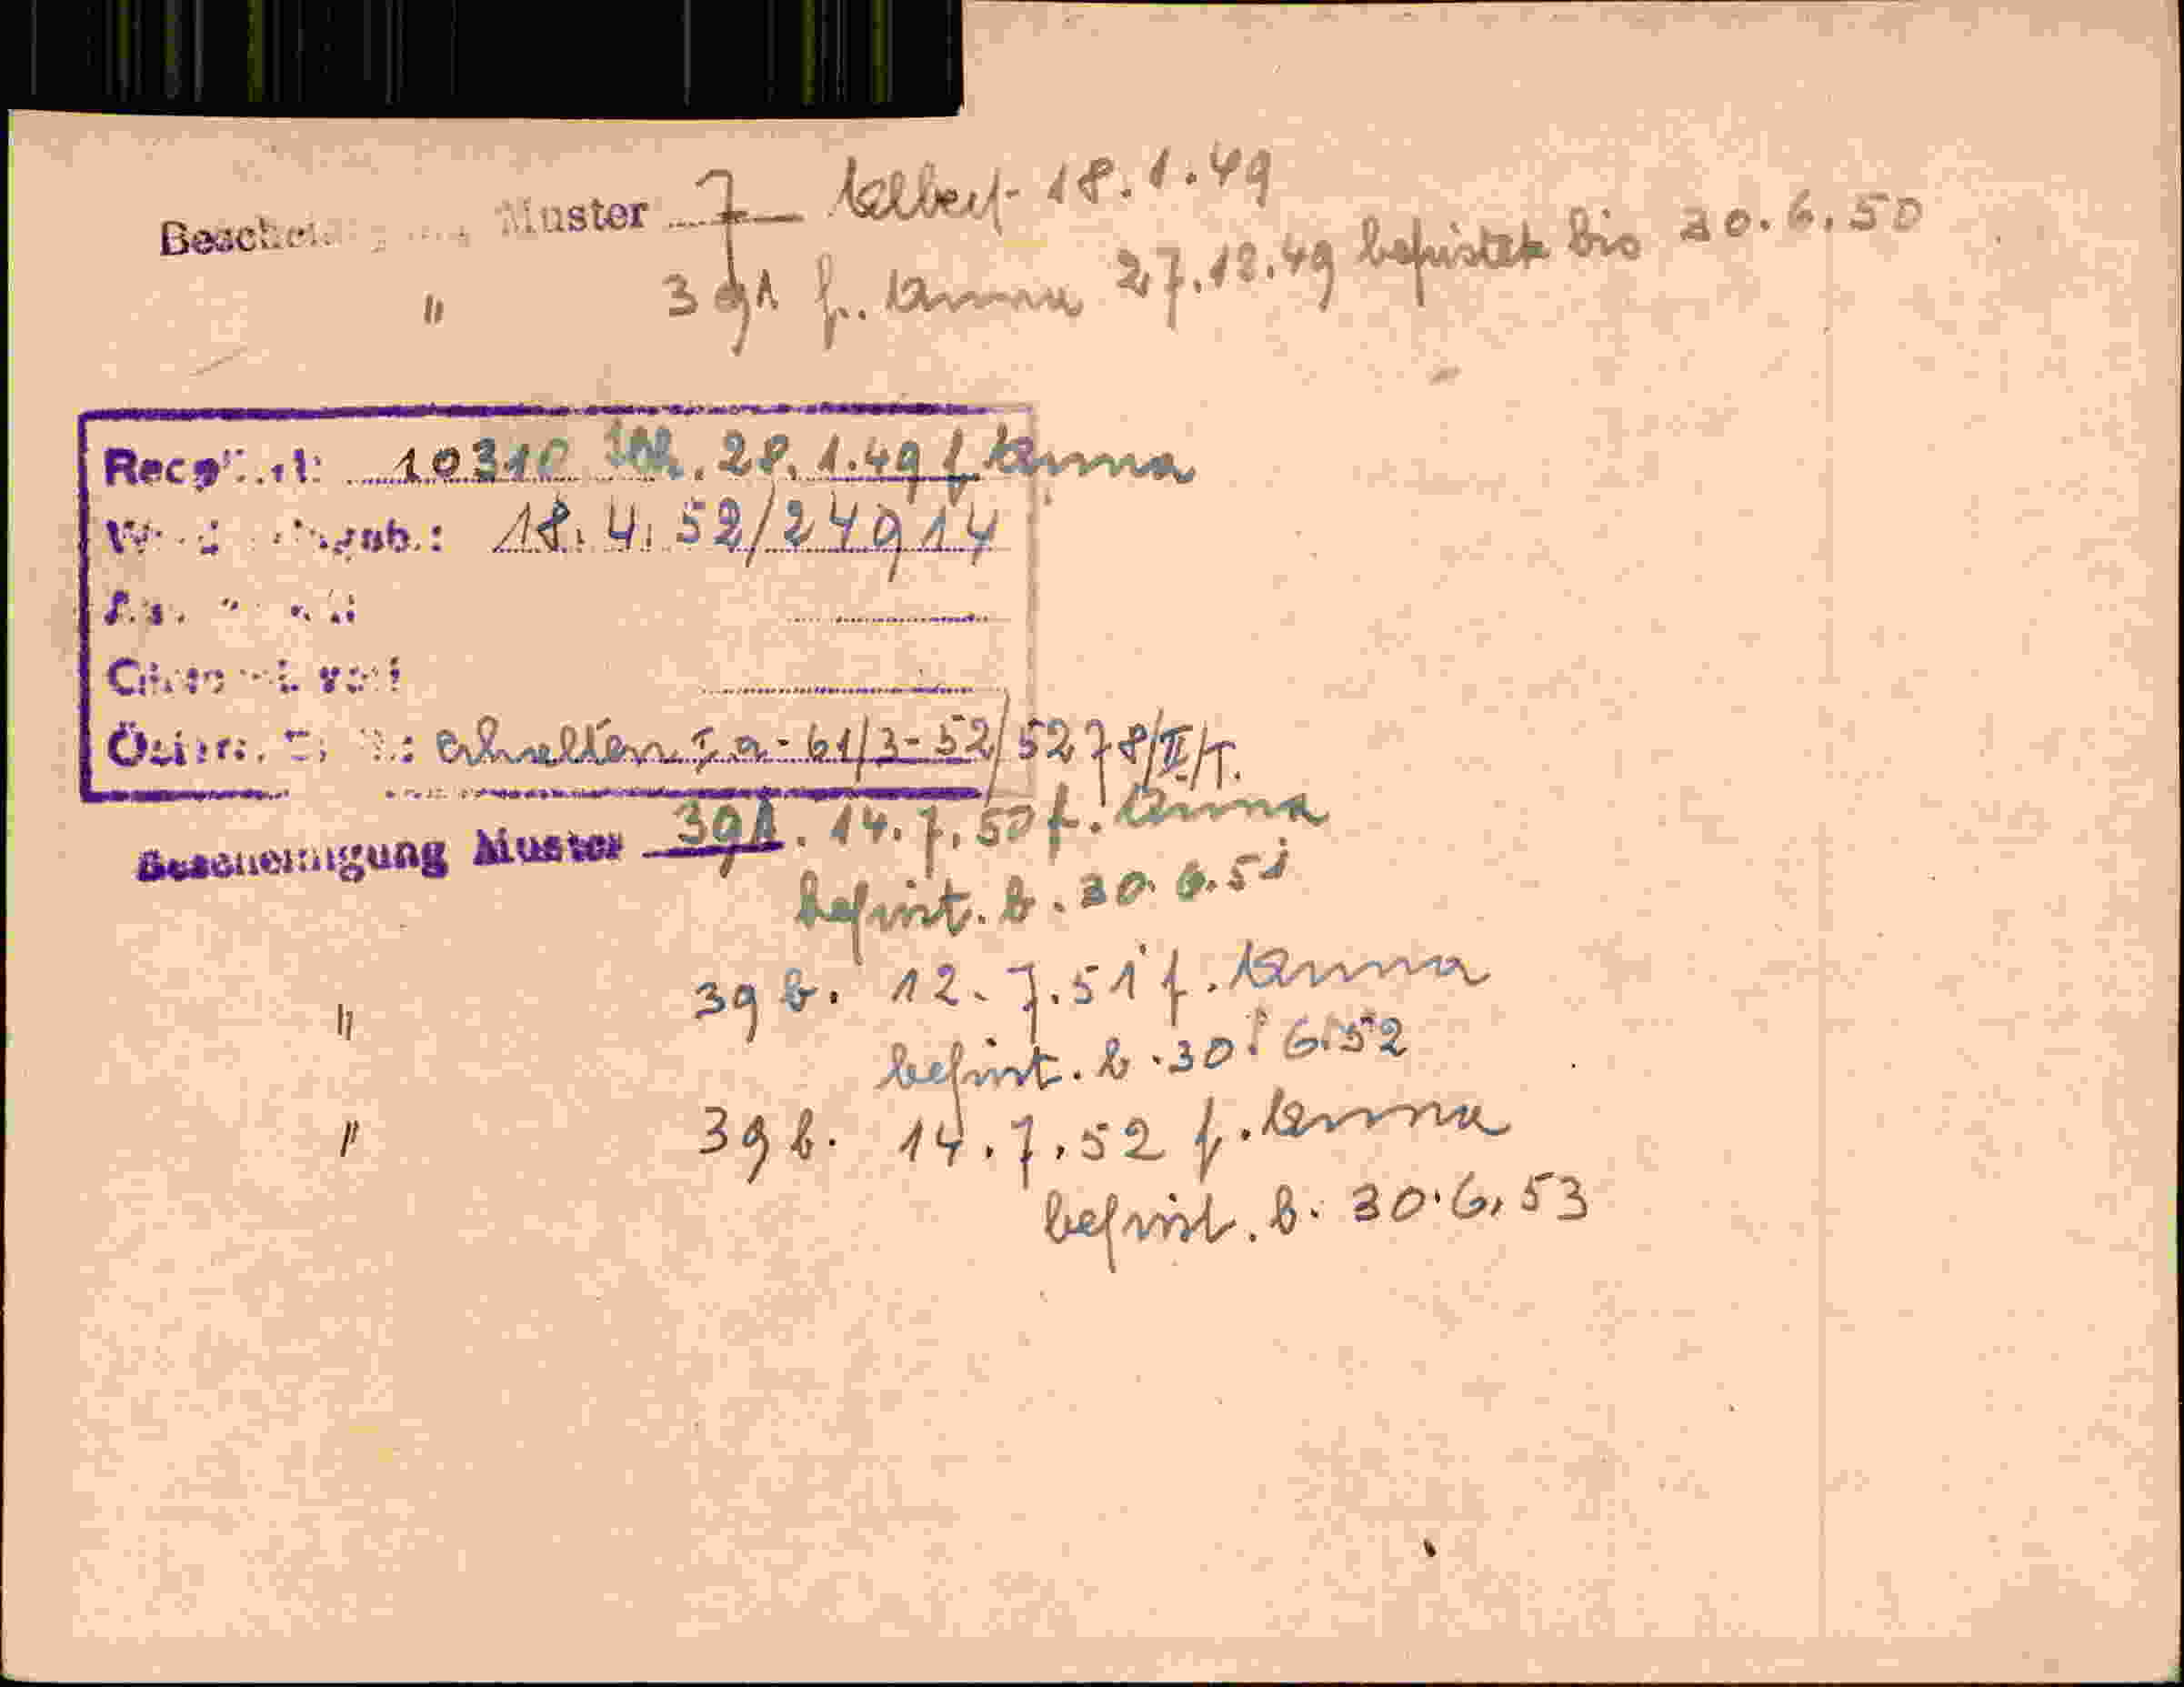 Muster 7 Albert 18.1.49
" 39A f. Anna 27.12.49 befristet bis 30.6.50
10310 28.1.49 f. Anna
18.4.52/24914
erhalten I a-61/3-52/5278/II/T.
Bescheinigung Muster 39A. 14.7.50 f. Anna
befrist. b. 30.6.51
" 39 b. 12.7.51 f. Anna
befrist. b. 30.6.52
" 39 b. 14.7.52 f. Anna
befrist. b. 30.6.53